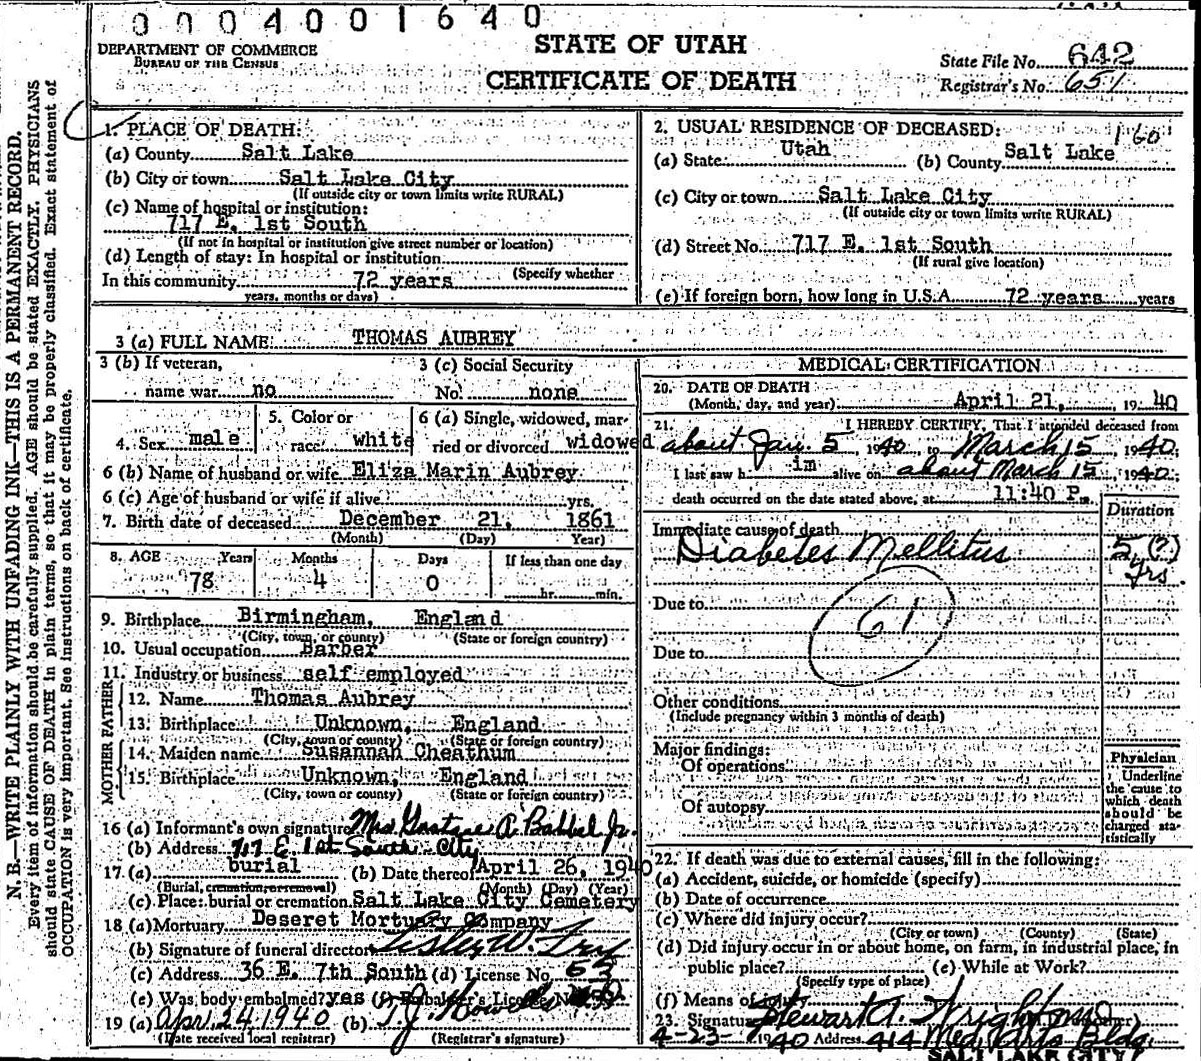 0004001640
DEPARTMENT OF COMMERCE
BUREAU OF THE CENSUS
STATE OF UTAH
CERTIFICATE OF DEATH
State File No. 642
Registrar's No. 651
N. B.—WRITE PLAINLY WITH UNFADING INK—THIS IS A PERMANENT RECORD.
Every item of information should be carefully supplied. AGE should be stated EXACTLY. PHYSICIANS
should state CAUSE OF DEATH in plain terms, so that it may be properly classified. Exact statement of
OCCUPATION is very important. See instructions on back of certificate.
1. PLACE OF DEATH:
(a) County Salt Lake
(b) City or town Salt Lake City
(If outside city or town limits write RURAL)
(c) Name of hospital or institution:
717 E. 1st South
(If not in hospital or institution give street number or location)
(d) Length of stay: In hospital or institution
(Specify whether
In this community 72 years
years, months or days)
2. USUAL RESIDENCE OF DECEASED: 160
(a) State Utah (b) County Salt Lake
(c) City or town Salt Lake City
(If outside city or town limits write RURAL)
(d) Street No. 717 E. 1st South
(If rural give location)
(e) If foreign born, how long in U.S.A. 72 years years
3 (a) FULL NAME THOMAS AUBREY
3 (b) If veteran,
name war no
3 (c) Social Security
No. none
4. Sex male
5. Color or
race white
6 (a) Single, widowed, mar-
ried or divorced widowed
6 (b) Name of husband or wife Eliza Marin Aubrey
6 (c) Age of husband or wife if alive yrs.
7. Birth date of deceased December 21, 1861
(Month) (Day) Year)
8. AGE Years Months Days If less than one day
78 4 0 hr. min.
9. Birthplace Birmingham, England
(City, town, or county) (State or foreign country)
10. Usual occupation Barber
11. Industry or business self employed
FATHER
12. Name Thomas Aubrey
13. Birthplace Unknown, England
(City, town or county) (State or foreign country)
MOTHER
14. Maiden name Susannah Cheathum
15. Birthplace Unknown, England
(City, town or county) (State or foreign country)
16 (a) Informant's own signature Mrs. A. Babbel Jr.
(b) Address 717 E 1st South - City
17 (a) burial (b) Date thereof April 26, 1940
(Burial, cremation, or removal) (Month) (Day) (Year)
(c) Place: burial or cremation Salt Lake City Cemetery
18 (a) Mortuary Deseret Mortuary Company
(b) Signature of funeral director Lesley W.
(c) Address 36 E. 7th South (d) License No.
(e) Was body embalmed? yes (f) Embalmer's License No.
19 (a) Apr. 24, 1940 (b) T. J. Howells
(Date received local registrar) (Registrar's signature)
MEDICAL CERTIFICATION
20. DATE OF DEATH
(Month, day, and year) April 21, 19 40
21. I HEREBY CERTIFY, That I attended deceased from
about Jan. 5 1940, to March 15, 1940;
I last saw h im alive on about March 15, 1940;
death occurred on the date stated above, at 11:40 P m.
Duration
Immediate cause of death
Diabetes Mellitus 5 (?)
yrs.
Due to 61
Due to
Other conditions
(Include pregnancy within 3 months of death)
Major findings:
Of operations
Of autopsy
Physician
Underline
the cause to
which death
should be
charged sta-
tistically
22. If death was due to external causes, fill in the following:
(a) Accident, suicide, or homicide (specify)
(b) Date of occurrence
(c) Where did injury occur?
(City or town) (County) (State)
(d) Did injury occur in or about home, on farm, in industrial place, in
public place? (e) While at Work?
(Specify type of place)
(f) Means of injury
23. Signature Stewart A. Wright
4-23-1940 Address 414 Med. Arts Bldg.
SALT LAKE CITY